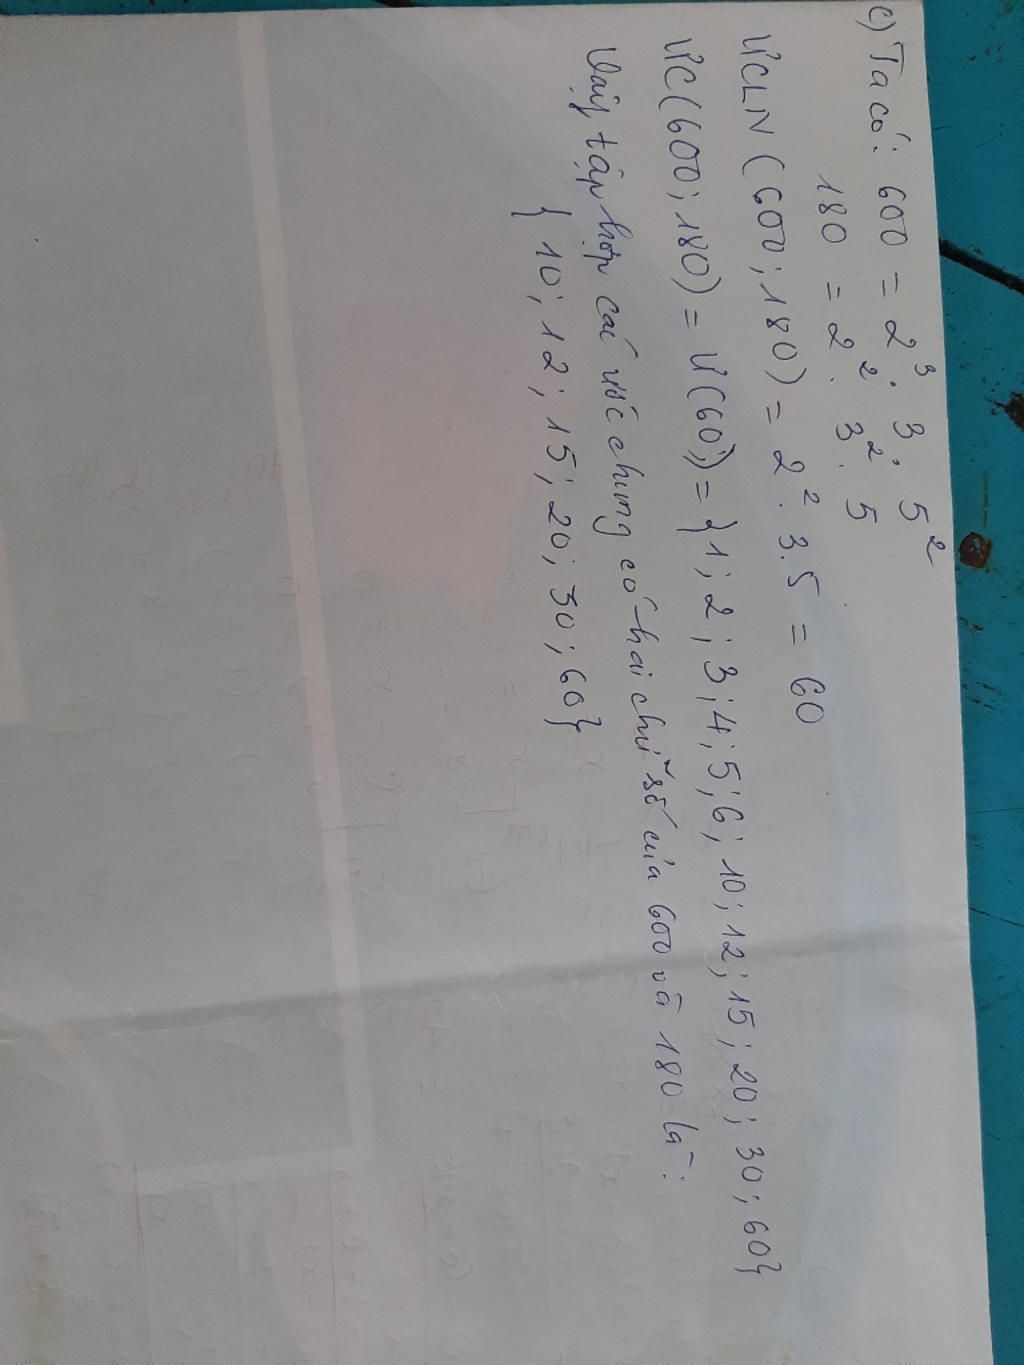 c) Ta có: 600 = 2³. 3. 5²
180 = 2². 3². 5
ƯCLN (600; 180) = 2². 3.5 = 60
ƯC(600; 180) = Ư(60) = {1; 2; 3; 4; 5; 6; 10; 12; 15; 20; 30; 60}
Vậy tập hợp các ước chung có hai chữ số của 600 và 180 là:
{ 10; 12; 15; 20; 30; 60}